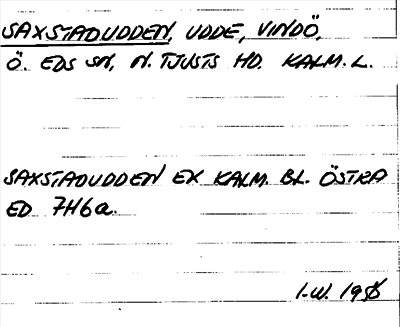 SAXSTADUDDEN, UDDE, VINDÖ,
Ö. EDS SN, N. TJUSTS HD. KALM. L.
SAXSTADUDDEN EK KALM. BL. ÖSTRA
ED 7H6a.
I-W.